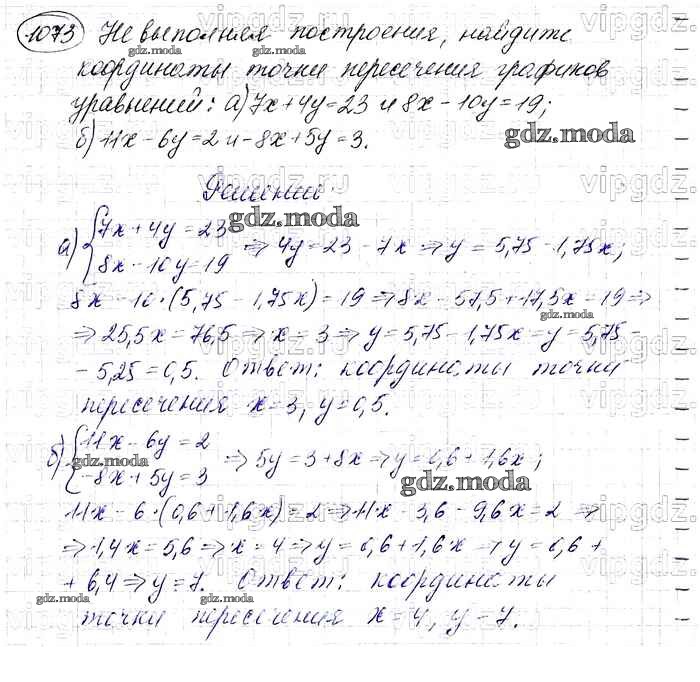 1073 Не выполняя построения, найдите
координаты точки пересечения графиков
уравнений: а) 7x+4y=23 и 8x-10y=19;
б) 11x-6y=2 и -8x+5y=3.
Решение:
а) {7x+4y=23
8x-10y=19 => 4y=23-7x => y=5,75-1,75x;
8x-10·(5,75-1,75x)=19 => 8x-57,5+17,5x=19 =>
=> 25,5x=76,5 => x=3 => y=5,75-1,75x=y=5,75-
-5,25=0,5. Ответ: координаты точки
пересечения x=3, y=0,5.
б) {11x-6y=2
-8x+5y=3 => 5y=3+8x => y=0,6+1,6x;
11x-6·(0,6+1,6x)=2 => 11x-3,6-9,6x=2 =>
=> 1,4x=5,6 => x=4 => y=0,6+1,6x => y=0,6+
+6,4 => y=7. Ответ: координаты
точки пересечения x=4, y=7.
gdz.moda
vipgdz.ru